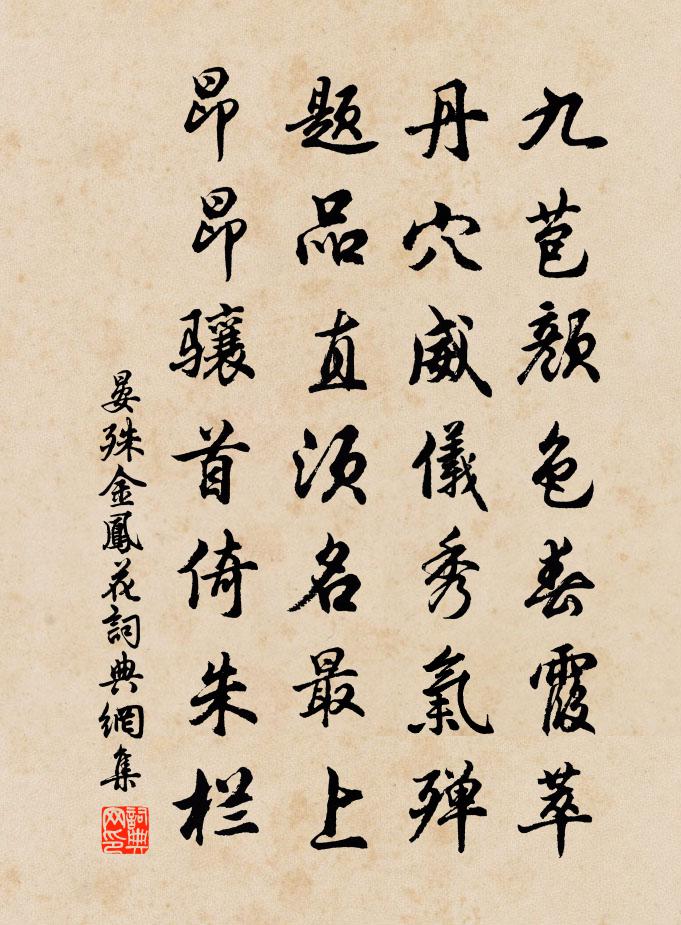 九苞颜色春霞萃
丹穴威儀秀氣殫
题品直须名最上
昂昂骧首倚朱栏
晏殊金鳳花詞典網集
詞典网印